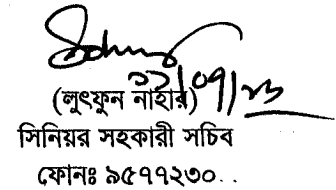 (লুৎফুন নাহার)
সিনিয়র সহকারী সচিব
ফোনঃ ৯৫৭৭২৩০..